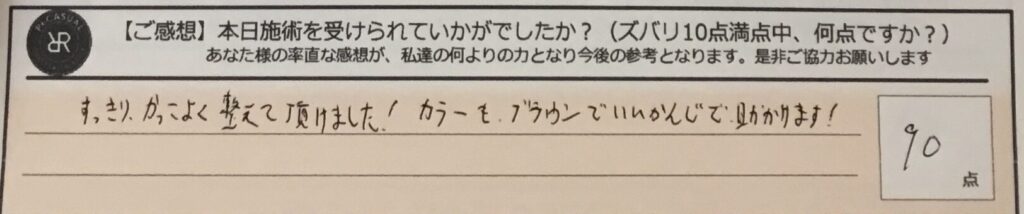 CASUAL
RR
【ご感想】本日施術を受けられていかがでしたか？（ズバリ10点満点中、何点ですか？）
あなた様の率直な感想が、私達の何よりの力となり今後の参考となります。是非ご協力お願いします
すっきり、かっこよく整えて頂けました！カラーも、ブラウンでいいかんじで、助かります！
90
点